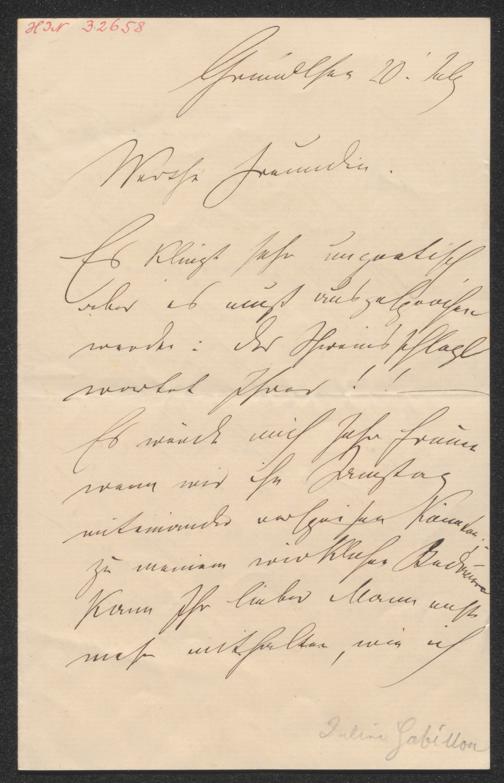 HIN 32658
Grundlsee 20. July
Werthe Freundin.
Es klingt sehr unpoetisch
aber es muß ausgesprochen
werden: der Schweinsschlägl
wartet Ihrer!!
Es würde mich sehr freuen
wenn wir ihn Samstag
miteinander verspeisen könnten.
zu meinem wirklichen Bedauern
kann Ihr lieber Mann nicht
mehr mithalten, wie ich
Zerline Gabillon